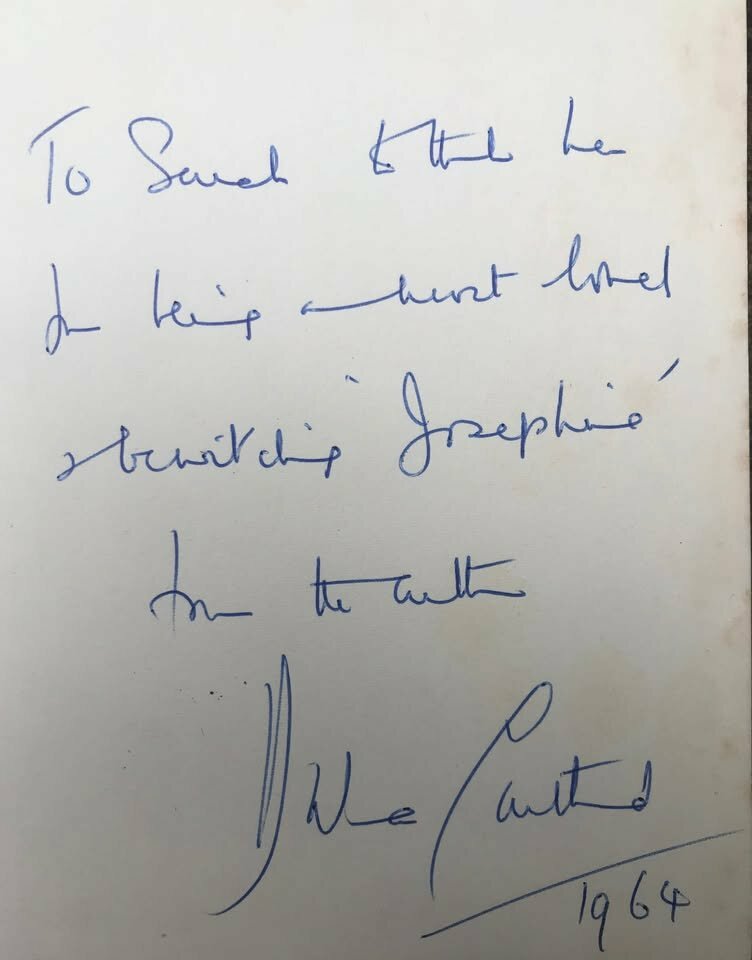 To Sarah to thank her
for being a most
& bewitching "Josephine"
from the author
Barbara Cartland
1964